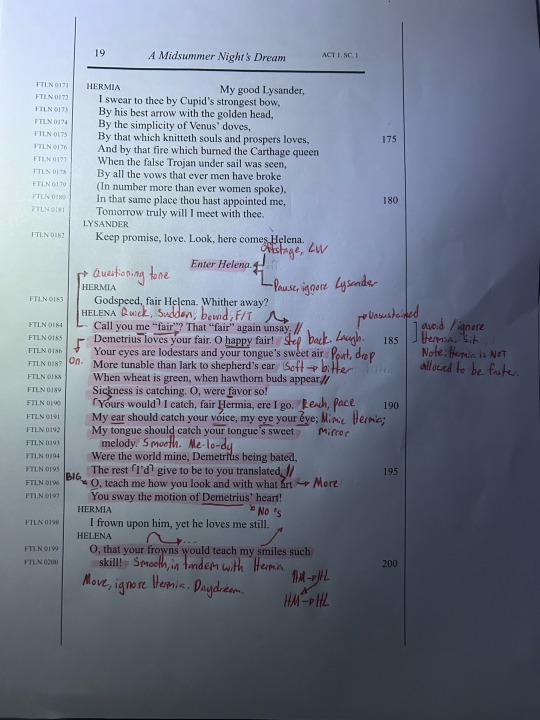 19 A Midsummer Night's Dream ACT 1. SC. 1
FTLN 0171 HERMIA My good Lysander,
FTLN 0172 I swear to thee by Cupid's strongest bow,
FTLN 0173 By his best arrow with the golden head,
FTLN 0174 By the simplicity of Venus' doves,
FTLN 0175 By that which knitteth souls and prospers loves, 175
FTLN 0176 And by that fire which burned the Carthage queen
FTLN 0177 When the false Trojan under sail was seen,
FTLN 0178 By all the vows that ever men have broke
FTLN 0179 (In number more than ever women spoke),
FTLN 0180 In that same place thou hast appointed me, 180
FTLN 0181 Tomorrow truly will I meet with thee.
LYSANDER
FTLN 0182 Keep promise, love. Look, here comes Helena.
Offstage, LW
Enter Helena.
Questioning tone
Pause, ignore Lysander
HERMIA
FTLN 0183 Godspeed, fair Helena. Whither away?
HELENA Quick, Sudden; bound; F/T
Unsustained
FTLN 0184 Call you me "fair"? That "fair" again unsay. //
avoid / ignore
FTLN 0185 Demetrius loves your fair. O happy fair! Step back. Laugh. 185
Hermia. Sit.
FTLN 0186 Your eyes are lodestars and your tongue's sweet air Point, drop
Note: Hermia is NOT
On.
FTLN 0187 More tunable than lark to shepherd's ear Soft → bitter
allowed to be
FTLN 0188 When wheat is green, when hawthorn buds appear. //
FTLN 0189 Sickness is catching. O, were favor so!
FTLN 0190 「Yours would」 I catch, fair Hermia, ere I go. Reach, pace 190
FTLN 0191 My ear should catch your voice, my eye your eye; Mimic Hermia;
FTLN 0192 My tongue should catch your tongue's sweet mirror
FTLN 0193 melody. Smooth. Me-lo-dy
FTLN 0194 Were the world mine, Demetrius being bated,
FTLN 0195 The rest 「I'd」 give to be to you translated. // 195
BIG
FTLN 0196 O, teach me how you look and with what art → More
FTLN 0197 You sway the motion of Demetrius' heart!
HERMIA No 's
FTLN 0198 I frown upon him, yet he loves me still.
HELENA ...
FTLN 0199 O, that your frowns would teach my smiles such
FTLN 0200 skill! Smooth, in tandem with Hermia 200
Move, ignore Hermia. Daydream.
HM → HL
HM → HL